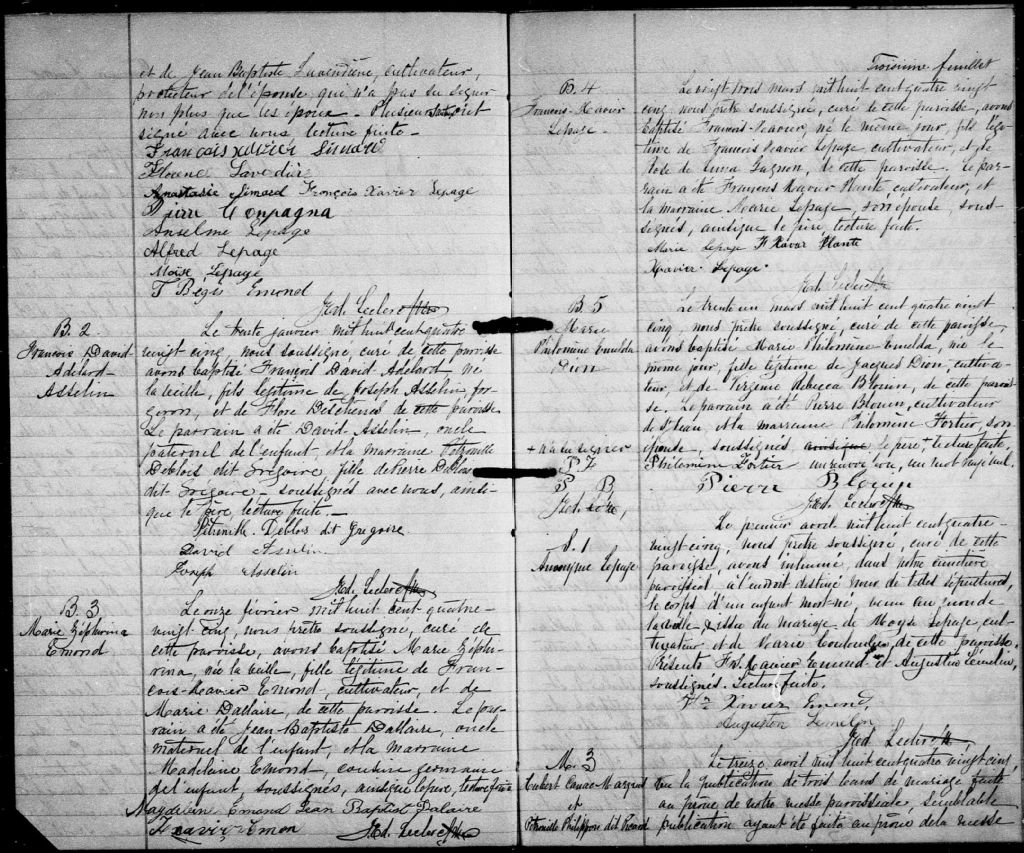 et de Jean Baptiste Lavendière, cultivateur,
protecteur de l'épouse, qui n'a pas su signer
non plus que les époux. Plusieurs ont
signé avec nous lecture faite.
François Xavier Simard
Florence
Anastasie Simard François Xavier Lepage
Pierre Compagna
Anselme Lepage
Alfred Lepage
Moïse Lepage
T Bégis Emond
Ged. Leclerc Ptre
B. 2
François David
Adelard
Asselin
Le trente janvier mil huit cent quatre
vingt cinq, nous soussigné, curé de cette paroisse
avons baptisé François David Adelard né
la veille, fils légitime de Joseph Asselin for
geron, et de Flore Deschenes de cette paroisse
Le parrain a été David Asselin, oncle
paternel de l'enfant et la marraine Petronille
Deblois dit Grégoire fille de Pierre Deblois
dit Grégoire - soussignés avec nous, ainsi
que le père, lecture faite.
Pétronille Deblois dit Gregoire
David Asselin
Joseph Asselin
Ged. Leclerc Ptre
B. 3
Marie Zéphirina
Emond
Le onze février mil huit cent quatre-
vingt cinq, nous prêtre soussigné, curé de
cette paroisse, avons baptisé Marie Zéphi-
rina, née la veille, fille légitime de Fran-
çois-Xavier Emond, cultivateur, et de
Marie Dallaire, de cette paroisse. Le par-
rain a été Jean-Baptiste Dallaire, oncle
maternel de l'enfant, et la marraine
Madelaine Emond, cousine germaine
de l'enfant, soussignés, ainsi que le père, lecture faite
Magdeleine Emond Jean Baptiste Dalaire
Xavier Emon Ged. Leclerc Ptre
Troisième feuillet
B. 4
François-Xavier
Lepage
Le vingt trois mars mil huit cent quatre vingt
cinq, nous prêtre soussigné, curé de cette paroisse, avons
baptisé François-Xavier, né le même jour, fils légi-
time de François Xavier Lepage, cultivateur, et de
Rose de Lima Gagnon, de cette paroisse. Le par-
rain a été François Xavier Plante cultivateur, et
la marraine Marie Lepage, son épouse, sous-
signés, ainsi que le père, lecture faite.
Marie Lepage F Xavier Plante
Xavier Lepage
Ged Leclerc Ptre
B. 5
Marie
Philomène Emelda
Dion
Le trente un mars mil huit cent quatre vingt
cinq, nous prêtre soussigné, curé de cette paroisse,
avons baptisé Marie Philomène Emelda, née le
même jour, fille légitime de Jacques Dion, cultiva-
teur, et de Virginie Rebecca Blouin, de cette parois-
se. Le parrain a été Pierre Blouin, cultivateur
de St Jean et la marraine Philomène Fortier, son
épouse, soussignés ainsi que le père + lecture faite,
+ n'a su signer
P F
P B
Ged. Lec.
Philomène Fortier un renvoi bon, un mot rayé nul.
Pierre Blouin
Ged. Leclerc Ptre
S. 1
Anonyme Lepage
Le premier avril mil huit cent quatre-
vingt cinq, nous prêtre soussigné, curé de cette
paroisse, avons inhumé, dans notre cimetière
paroissial à l'endroit destiné pour de telles sépultures,
le corps d'un enfant mort-né, venu au monde
la veille issu du mariage de Moyse Lepage, cul-
tivateur et de Marie Coulombe, de cette paroisse.
Présents Frs. Xavier Emond et Augustin Lemelin,
soussignés. Lecture faite.
Frs Xavier Emond
Augustin Lemelin
Ged. Leclerc Ptre
M. 3
Hubert Canac Marquis
et
Petronille Philippon dit Picard
Le treize avril mil huit cent quatre vingt cinq
vu la publication de trois bans de mariage faite
au prône de notre messe paroissiale, semblable
publication ayant été faite au prône de la messe